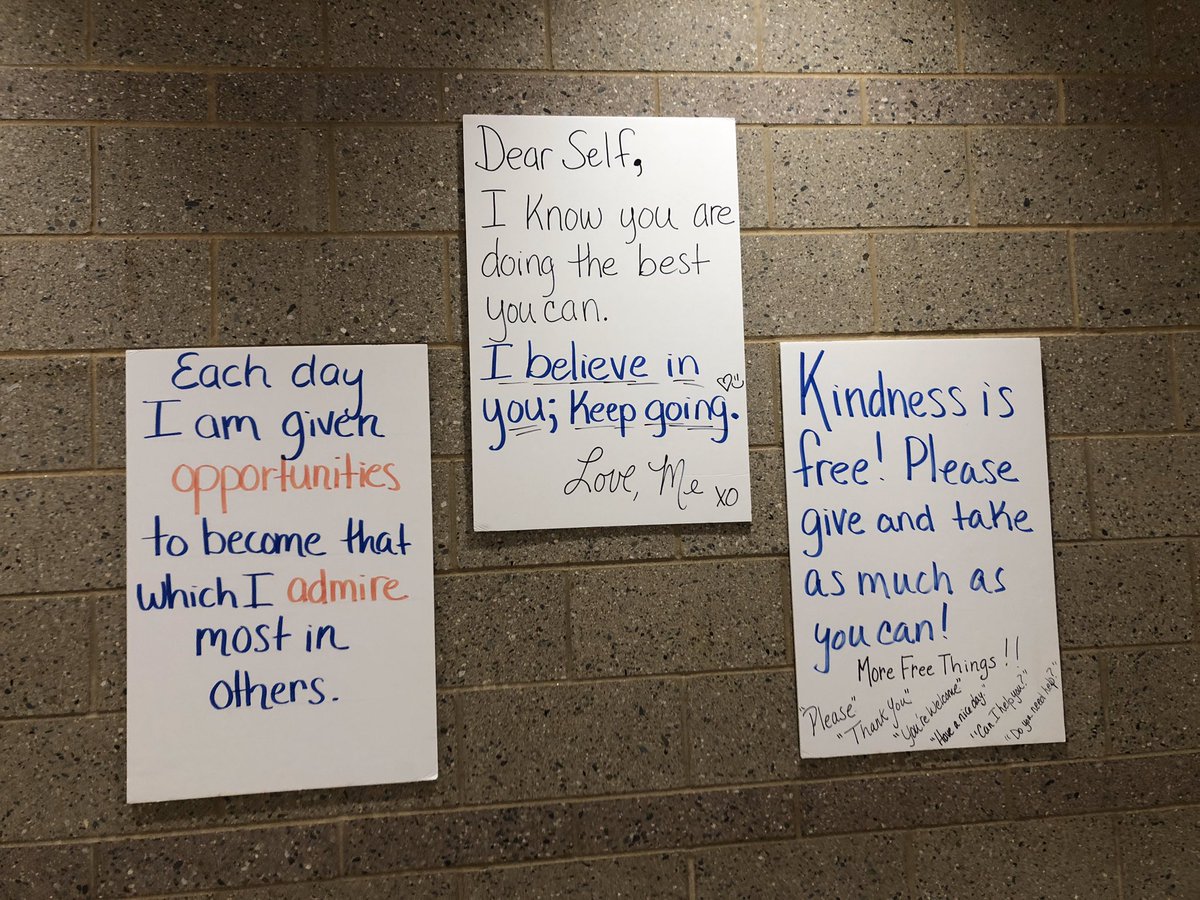 Each day
I am given
opportunities
to become that
which I admire
most in
others.
Dear Self,
I Know you are
doing the best
you can.
I believe in
you; Keep going.
Love, Me XO
Kindness is
free! Please
give and take
as much as
you can!
More Free Things!!
"Please"
"Thank You"
"You're Welcome"
"Have a nice day."
"Can I help you?"
"Do you need help?"